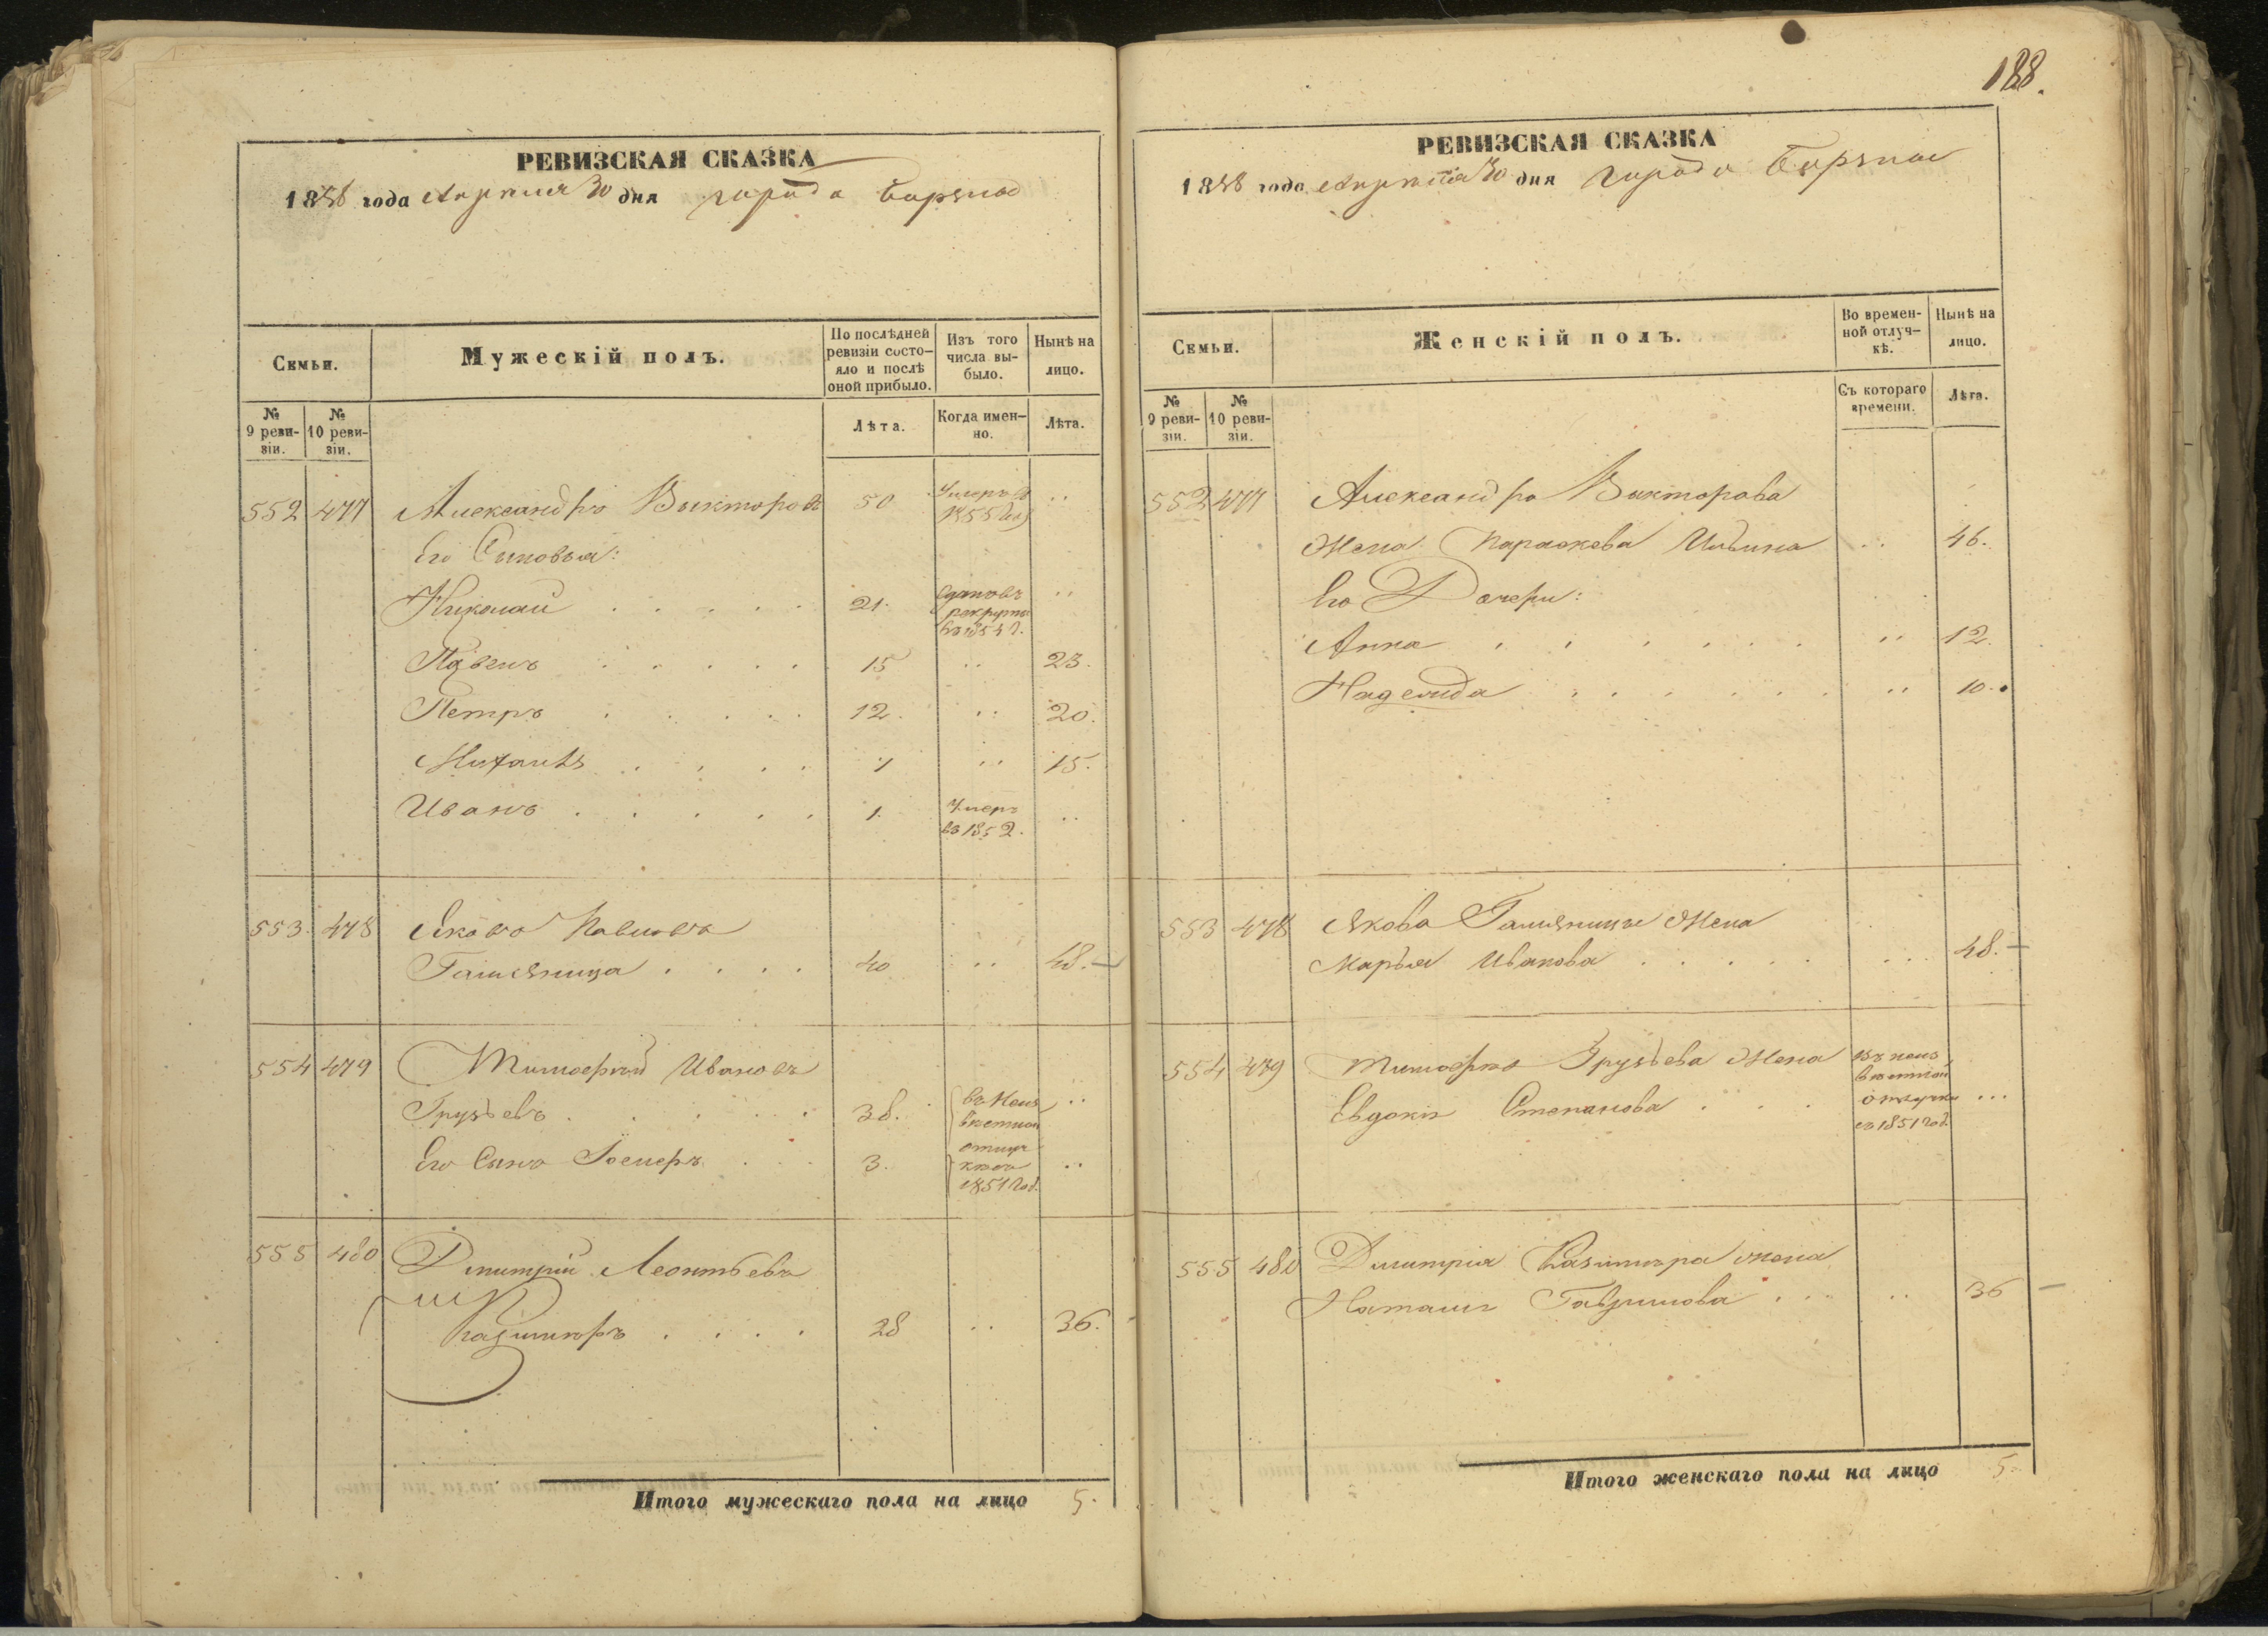 188.
РЕВИЗСКАЯ СКАЗКА
1858 года Апреля 30 дня города Борзны
Семьи.
Мужескій полъ.
По послѣдней ревизіи состояло и послѣ оной прибыло.
Изъ того числа выбыло.
Нынѣ на лицо.
№ 9 ревизіи.
№ 10 ревизіи.
Лѣта.
Когда именно.
Лѣта.
552 477 Александръ Викторовъ 50 Умеръ въ 1855 году ..
Его Сыновья:
Николай . . . . . 21. сданъ въ рекруты въ 1854 г. ..
Павелъ . . . . . 15 .. 23.
Петръ . . . . . 12. .. 20.
Михаилъ . . . . 7 .. 15.
Иванъ . . . . . 1. Умеръ въ 1852. ..
553. 478 Яковъ Павловъ
. . . . 40 .. 48.—
554 479 Тимофей Ивановъ
Груздевъ . . . . . 38. въ Неизвѣстной отлучкѣ съ 1851 год. ..
Его Сынъ . . 3. ..
555 480 Дмитрій Леонтьевъ
Казимиръ . . . . 28 .. 36.
Итого мужескаго пола на лицо 5.
РЕВИЗСКАЯ СКАЗКА
1858 года Апреля 30 дня города Борзны
Семьи.
Женскій полъ.
Во временной отлучкѣ.
Нынѣ на лицо.
№ 9 ревизіи.
№ 10 ревизіи.
Съ котораго времени.
Лѣта.
552 477 Александра Викторова
Жена Параскева Ильина .. 46.
Его Дочери:
Анна . . . . . . .. 12.
Надежда . . . . . . .. 10.
553 478 Якова Жена
Марья Иванова . . . . . ... 48.—
554 479 Тимофея Груздева Жена въ неизвѣстной отлучки съ 1851 год.
Евдокія Степанова . . . ...
555 480 Дмитрія Казимира жена
Наталія Гаврилова . . . .. 36 —
Итого женскаго пола на лицо 5.